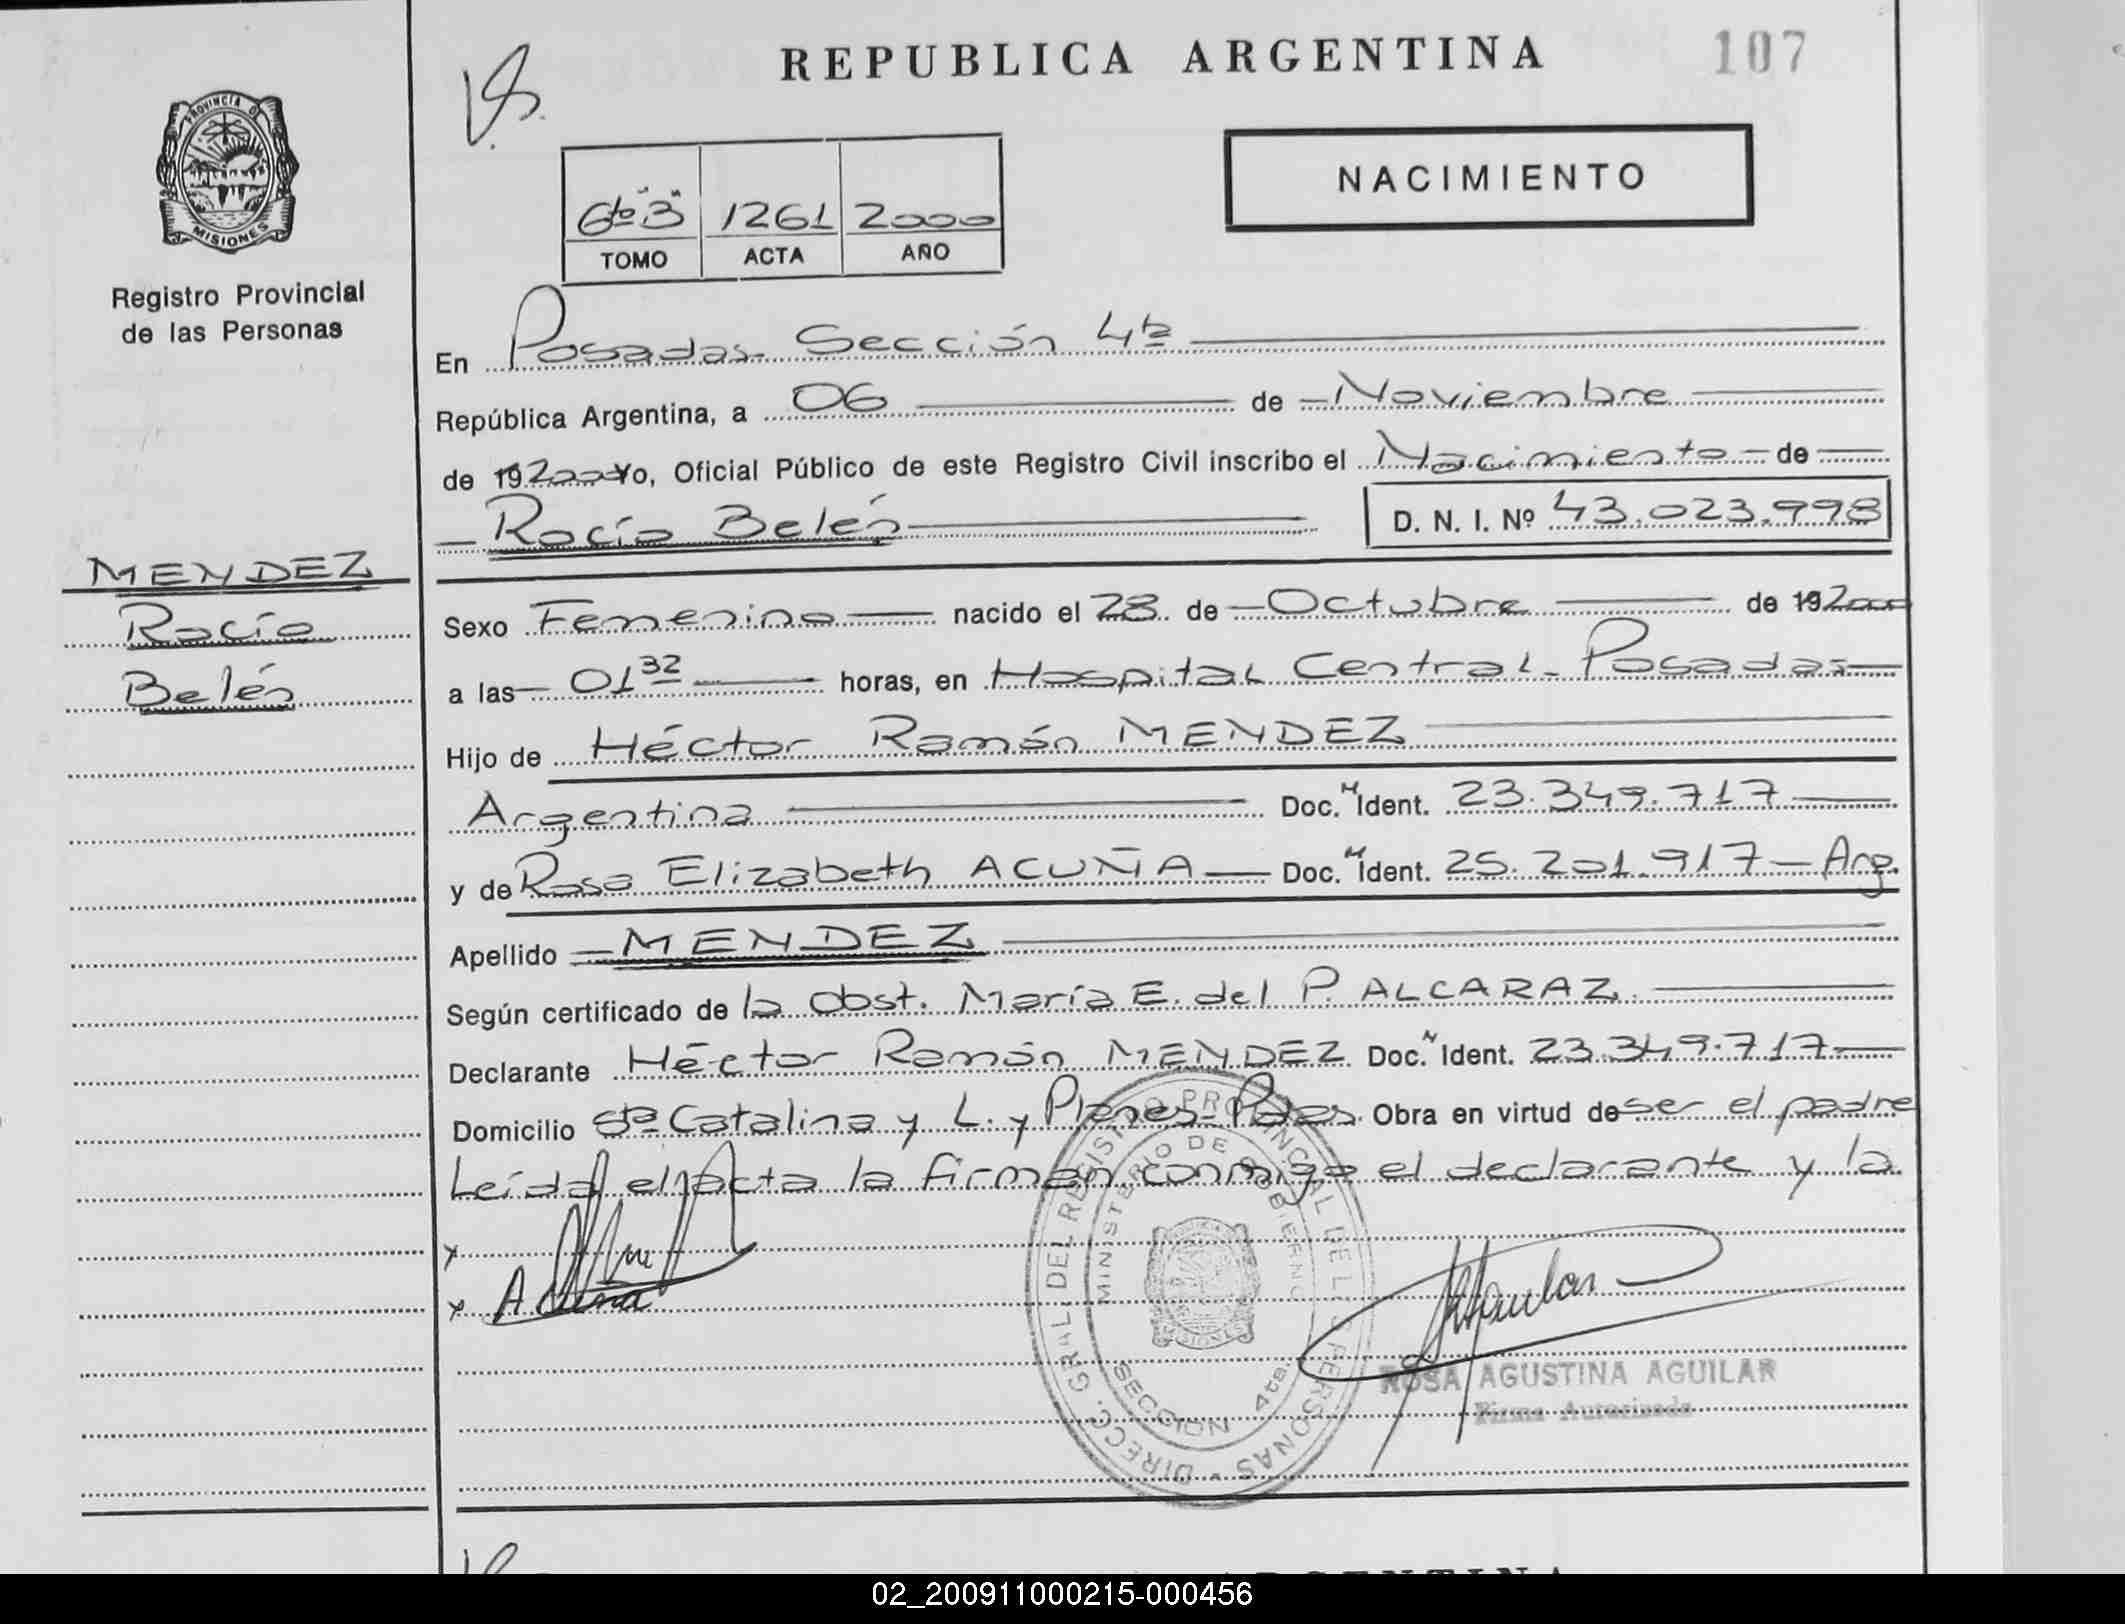 REPUBLICA ARGENTINA
107
PROVINCIA DE
MISIONES
Registro Provincial
de las Personas
6to "B" 1261 2000
TOMO ACTA AÑO
NACIMIENTO
En Posadas- Sección 4ta
República Argentina, a 06 de Noviembre
de 192000 Yo, Oficial Público de este Registro Civil inscribo el Nacimiento de
Rocío Belén D. N. I. Nº 43.023.998
MENDEZ
Rocío
Belén
Sexo Femenino nacido el 28 de Octubre de 192000
a las 01 32 horas, en Hospital Central- Posadas
Hijo de Héctor Ramón MENDEZ
Argentina Doc. N Ident. 23.349.717
y de Rosa Elizabeth ACUÑA Doc. N Ident. 25.201.917 - Arg.
Apellido MENDEZ
Según certificado de la Obst. María E. del P. ALCARAZ
Declarante Héctor Ramón MENDEZ Doc. N Ident. 23.349.717
Domicilio Sta Catalina y L. y Planes- Pdas. Obra en virtud de ser el padre
Leída el acta la firman conmigo el declarante y la
x
x Acuña
DIRECC. GRAL. DEL REGISTRO PROVINCIAL DE LAS PERSONAS
MINISTERIO DE GOBIERNO
MISIONES
SECCION 4ta.
ROSA AGUSTINA AGUILAR
Firma Autorizada
02_200911000215-000456